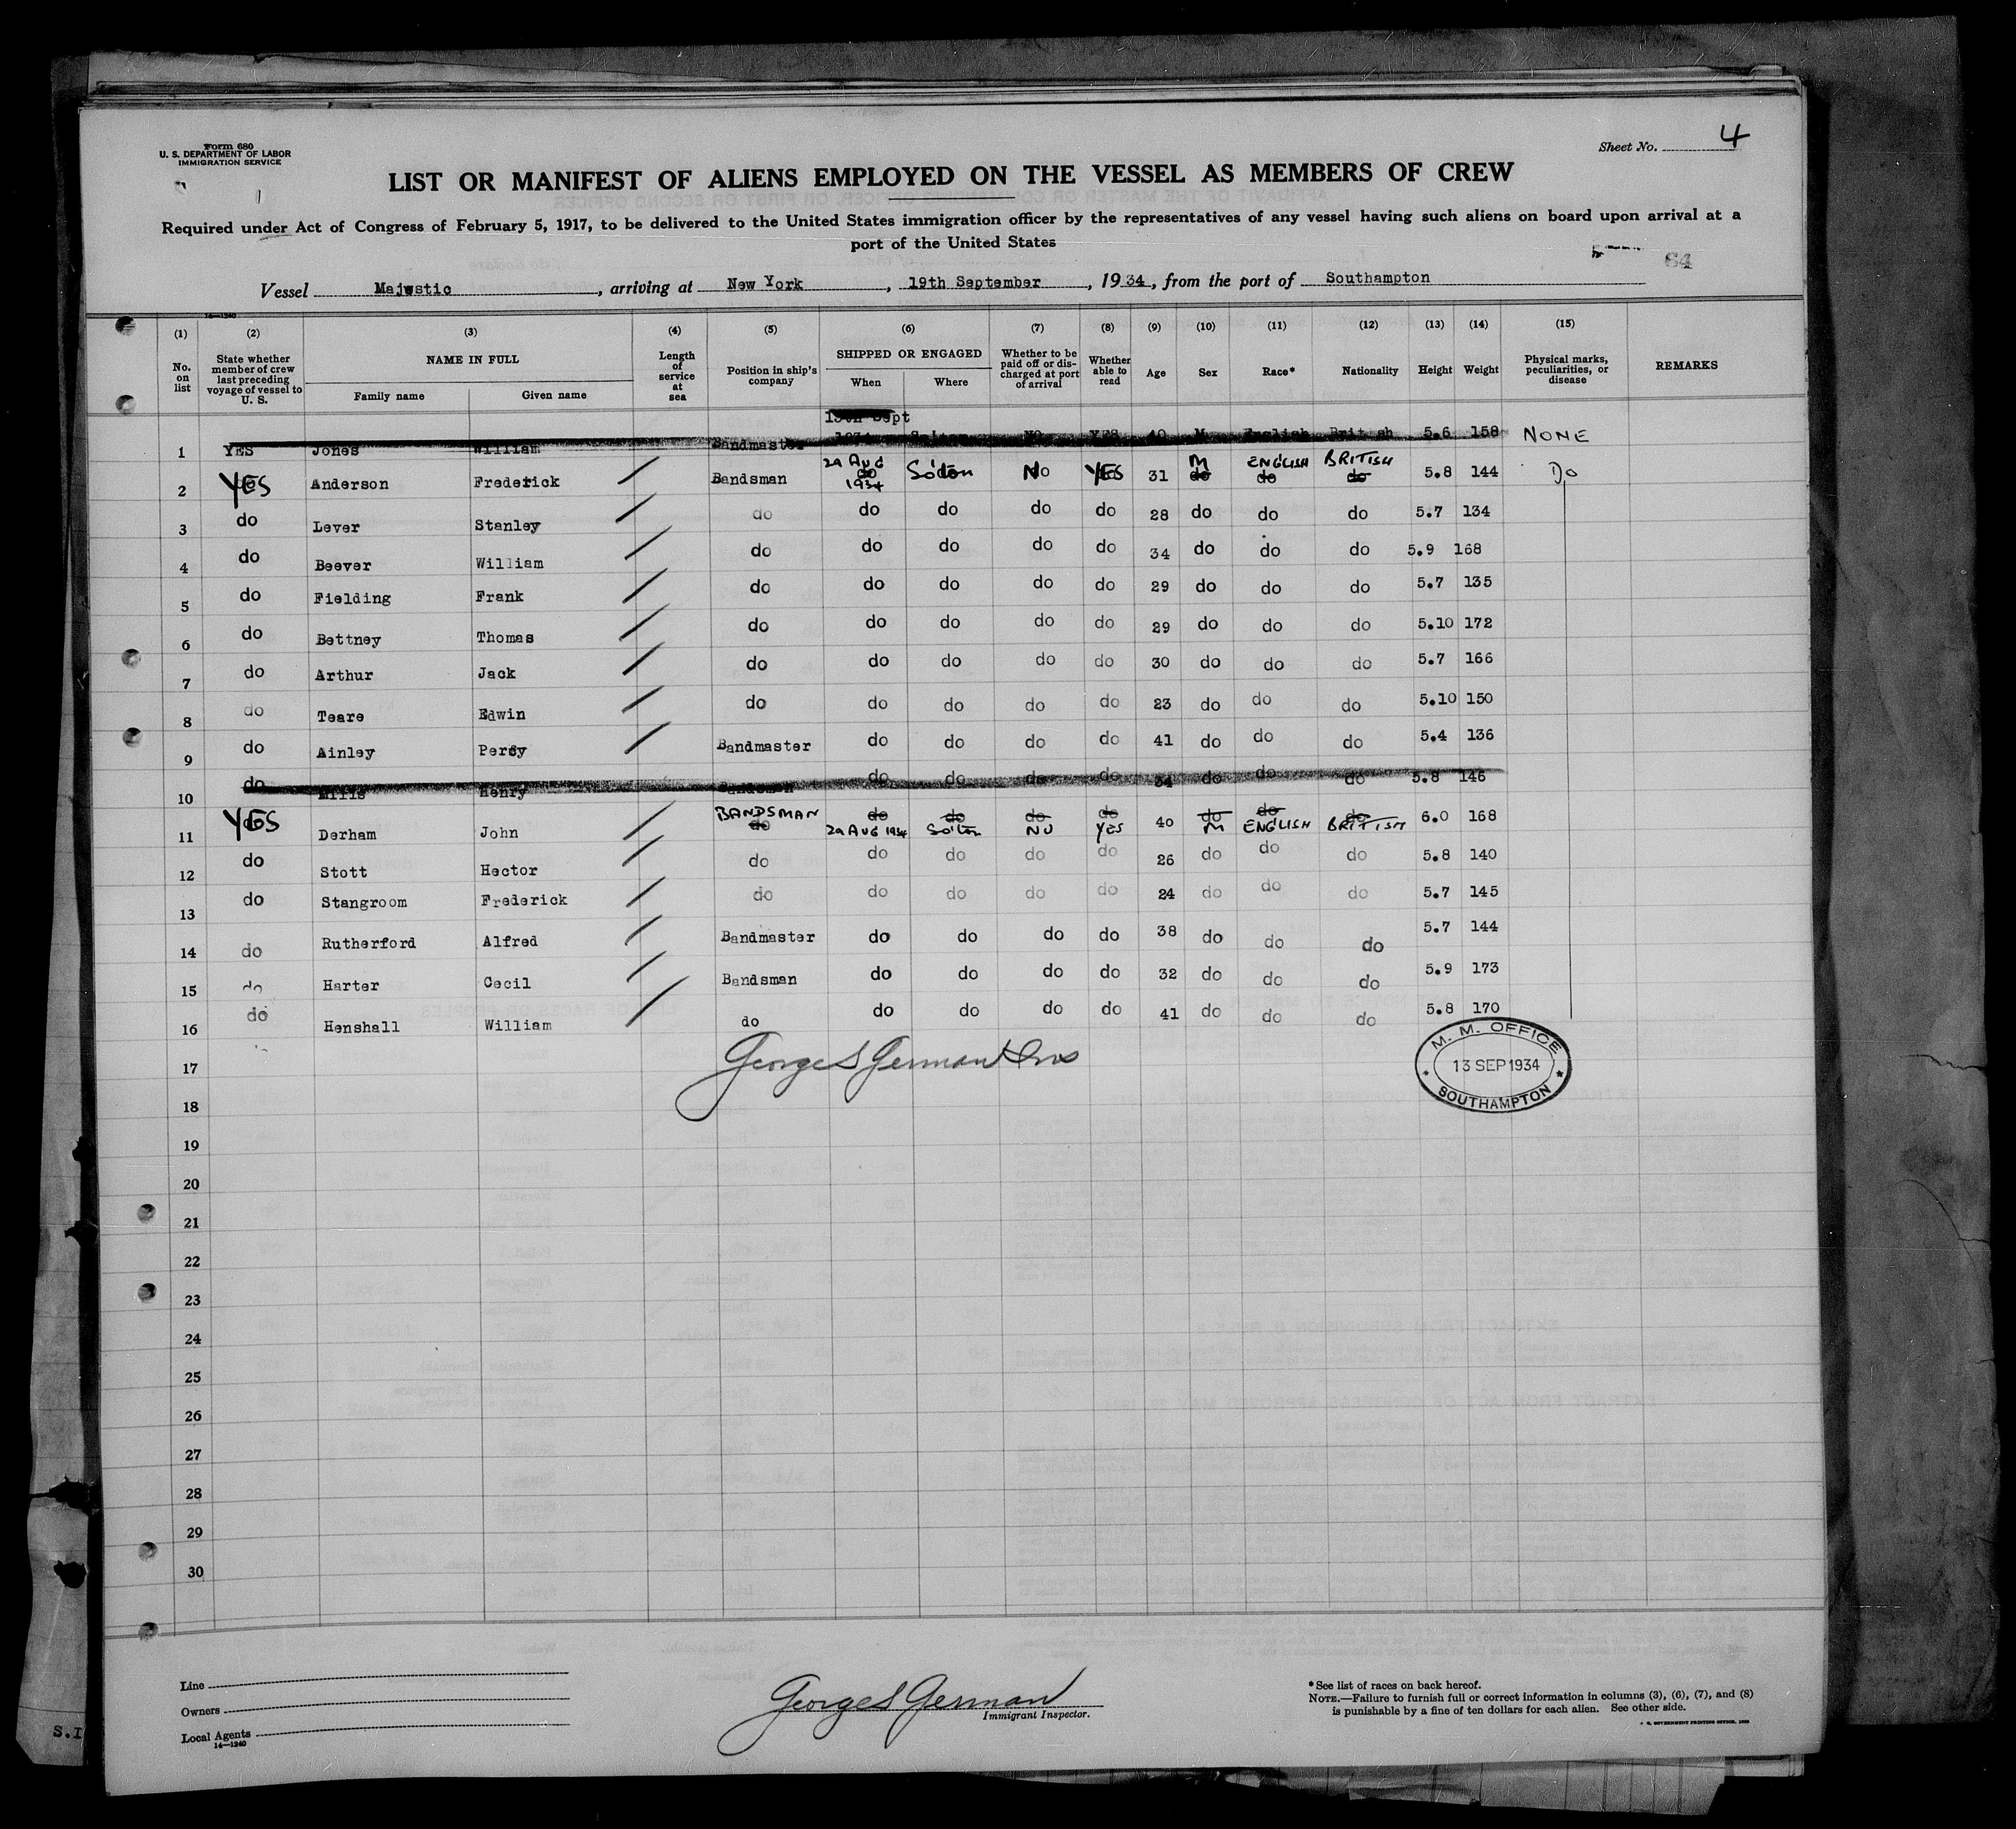 Form 680
U. S. DEPARTMENT OF LABOR
IMMIGRATION SERVICE
Sheet No. 4
LIST OR MANIFEST OF ALIENS EMPLOYED ON THE VESSEL AS MEMBERS OF CREW
Required under Act of Congress of February 5, 1917, to be delivered to the United States immigration officer by the representatives of any vessel having such aliens on board upon arrival at a
port of the United States
64
Vessel Majestic, arriving at New York, 19th September, 1934, from the port of Southampton
14—1240
(1) (2) (3) (4) (5) (6) (7) (8) (9) (10) (11) (12) (13) (14) (15)
No. on list
State whether member of crew last preceding voyage of vessel to U. S.
NAME IN FULL
Family name Given name
Length of service at sea
Position in ship's company
SHIPPED OR ENGAGED
When Where
Whether to be paid off or discharged at port of arrival
Whether able to read
Age Sex Race* Nationality Height Weight
Physical marks, peculiarities, or disease
REMARKS
1 YES Jones William Bandmaster 13th Sept 1934 Soton NO YES 40 M English British 5.6 158 NONE
2 YES Anderson Frederick Bandsman do 29 AUG 1934 So'ton No YES 31 do M do ENGLISH do BRITISH 5.8 144 Do
3 do Lever Stanley do do do do do 28 do do do 5.7 134
4 do Beever William do do do do do 34 do do do 5.9 168
5 do Fielding Frank do do do do do 29 do do do 5.7 135
6 do Bettney Thomas do do do do do 29 do do do 5.10 172
7 do Arthur Jack do do do do do 30 do do do 5.7 166
8 do Teare Edwin do do do do do 23 do do do 5.10 150
9 do Ainley Percy Bandmaster do do do do 41 do do do 5.4 136
10 do Henry Bandsman do do do do 34 do do do 5.8 146
11 YES Derham John do BANDSMAN do 29 AUG 1934 do So'ton do NO do YES 40 do M do ENGLISH do BRITISH 6.0 168
12 do Stott Hector do do do do do 26 do do do 5.8 140
13 do Stangroom Frederick do do do do do 24 do do do 5.7 145
14 do Rutherford Alfred Bandmaster do do do do 38 do do do 5.7 144
15 do Harter Cecil Bandsman do do do do 32 do do do 5.9 173
16 do Henshall William do do do do do 41 do do do 5.8 170
17 George S German Ins
M. M. OFFICE
13 SEP 1934
SOUTHAMPTON
18
19
20
21
22
23
24
25
26
27
28
29
30
Line
Owners
Local Agents
14—1240
George S German
Immigrant Inspector.
* See list of races on back hereof.
NOTE.—Failure to furnish full or correct information in columns (3), (6), (7), and (8)
is punishable by a fine of ten dollars for each alien. See other side.
S.I